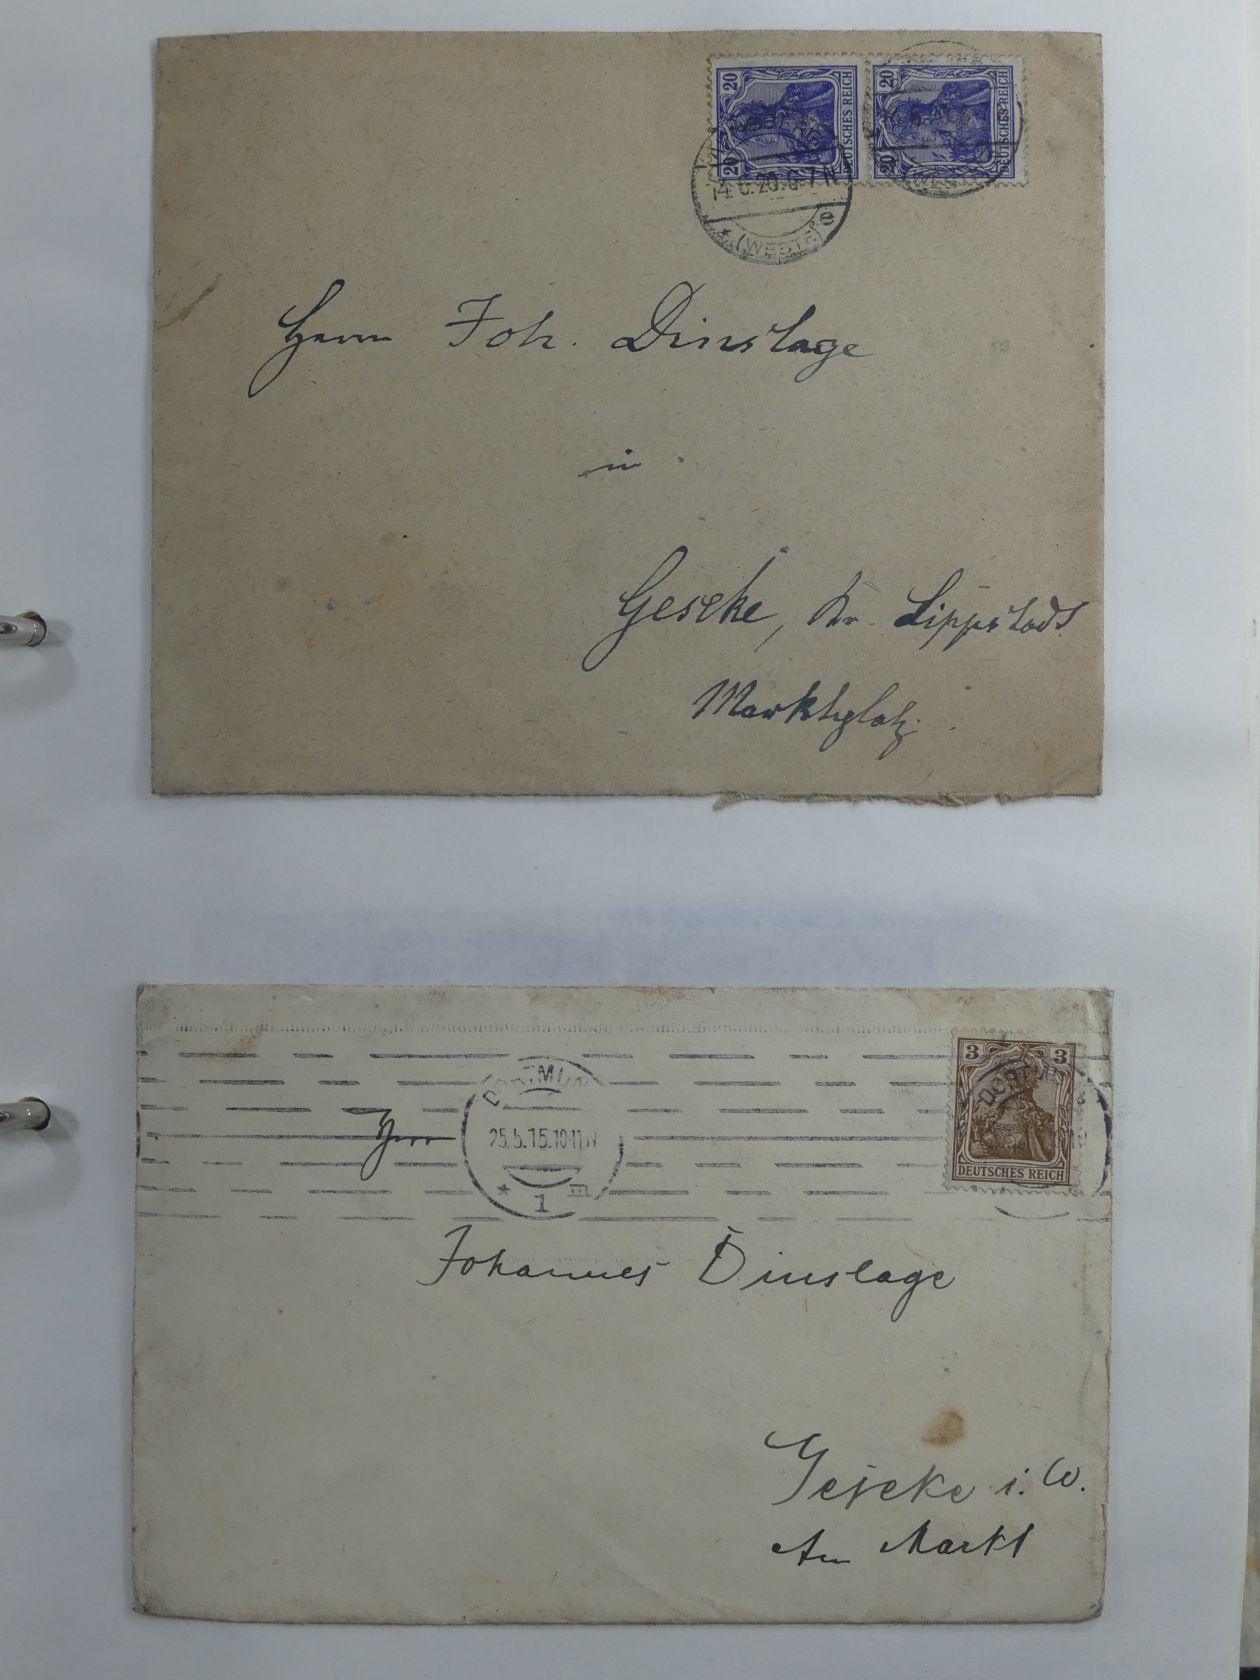 20 20
20 20
DEUTSCHES REICH DEUTSCHES REICH
(WESTF)
Herrn Joh. Dinslage
in
Geseke, Kr. Lippstadt
Marktplatz
3 3
DEUTSCHES REICH
DORTMUND
25.5.15.10-11N
* 1
DORTMUND
Herrn
Johannes Dinslage
Geseke i. W.
Am Markt